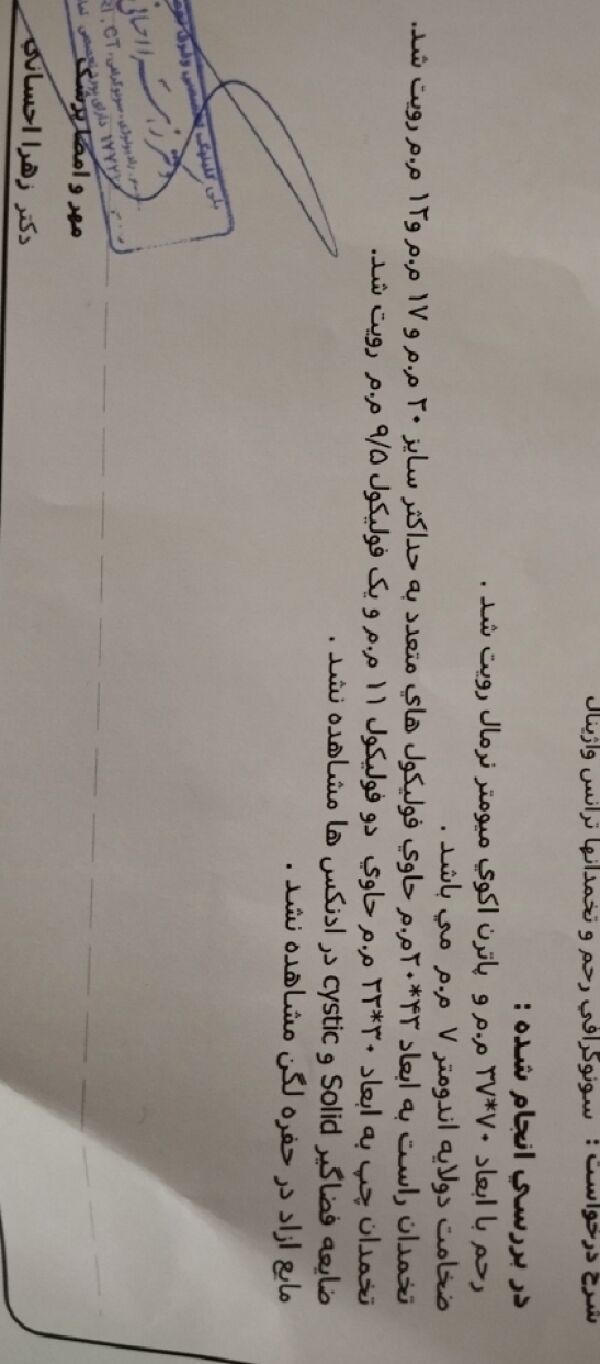 شرح درخواست : سونوگرافی رحم و تخمدانها ترانس واژینال
در بررسی انجام شده :
رحم با ابعاد ۷۰*۳۷ م.م و پاترن اکوی میومتر نرمال رویت شد .
ضخامت دولایه اندومتر ۷ م.م می باشد .
تخمدان راست به ابعاد ۴۳*۲۰م.م حاوی فولیکول های متعدد به حداکثر سایز ۲۰ م.م و ۱۷ م.م و ۱۳ م.م رویت شد.
تخمدان چپ به ابعاد ۳۰*۲۳ م.م حاوی دو فولیکول ۱۱ م.م و یک فولیکول ۹/۵ م.م رویت شد.
ضایعه فضاگیر Solid و cystic در ادنکس ها مشاهده نشد .
مایع ازاد در حفره لگن مشاهده نشد .
مهر و امضا پزشک
دکتر زهرا احسانی